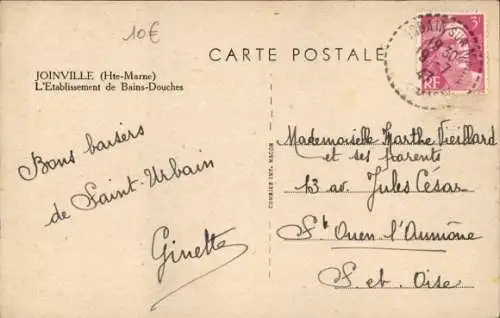 10€
CARTE POSTALE
JOINVILLE (Hte-Marne)
L'Etablissement de Bains-Douches
Bons baisers
de Saint-Urbain
Ginette
COMBIER IMP. MACON
3F
RF
Mademoiselle Marthe Vieillard
et ses parents
13 av. Jules César
St Ouen l'Aumône
S. et. Oise